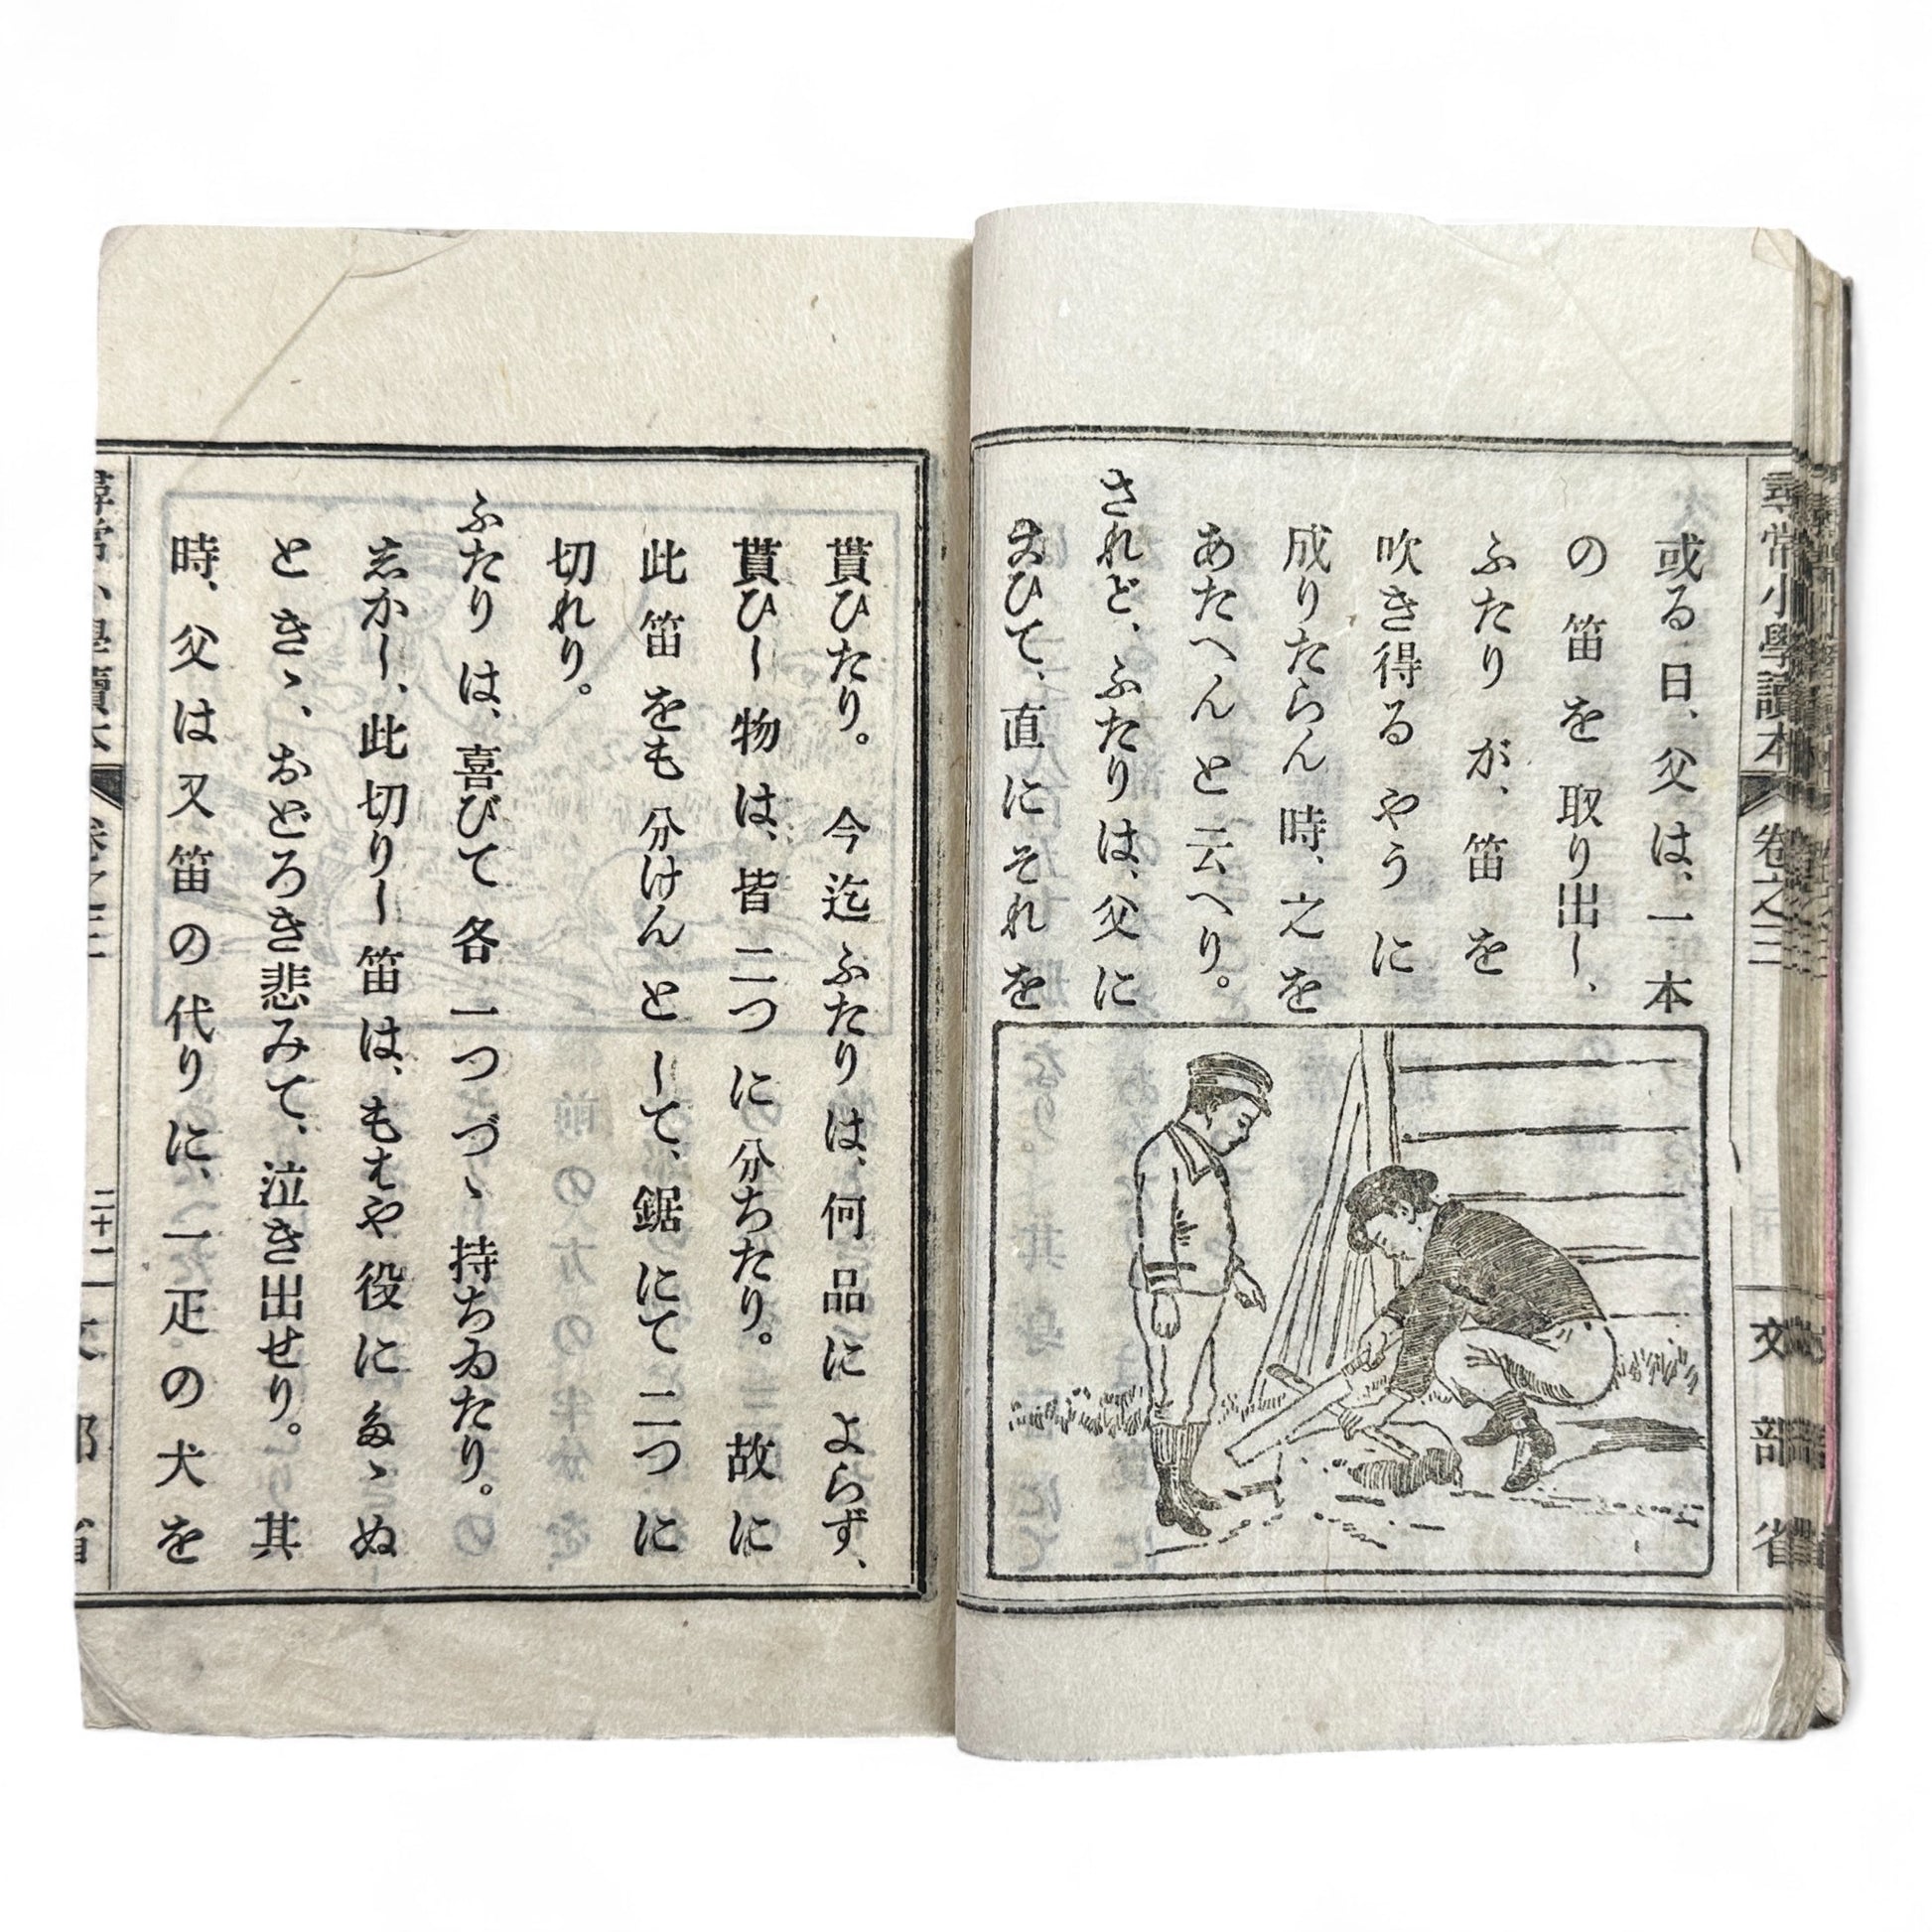 尋常小學讀本 卷之三 文部省
或る日、父は、一本
の笛を取り出し、
ふたりが、笛を
吹き得るやうに
成りたらん時、之を
あたへんと云へり。
されど、ふたりは、父に
志ひて、直にそれを
貰ひたり。今迄ふたりは、何品によらず、
貰ひし物は、皆二つに分ちたり。故に
此笛をも分けんとして、鋸にて二つに
切れり。
ふたりは、喜びて各一つづゝ持ちゐたり。
志かし、此切りし笛は、もはや役にたゝぬ
ときゝ、おどろき悲みて、泣き出せり。其
時、父は又笛の代りに、一疋の犬を
尋常小學讀本 卷之三 二十一 文部省